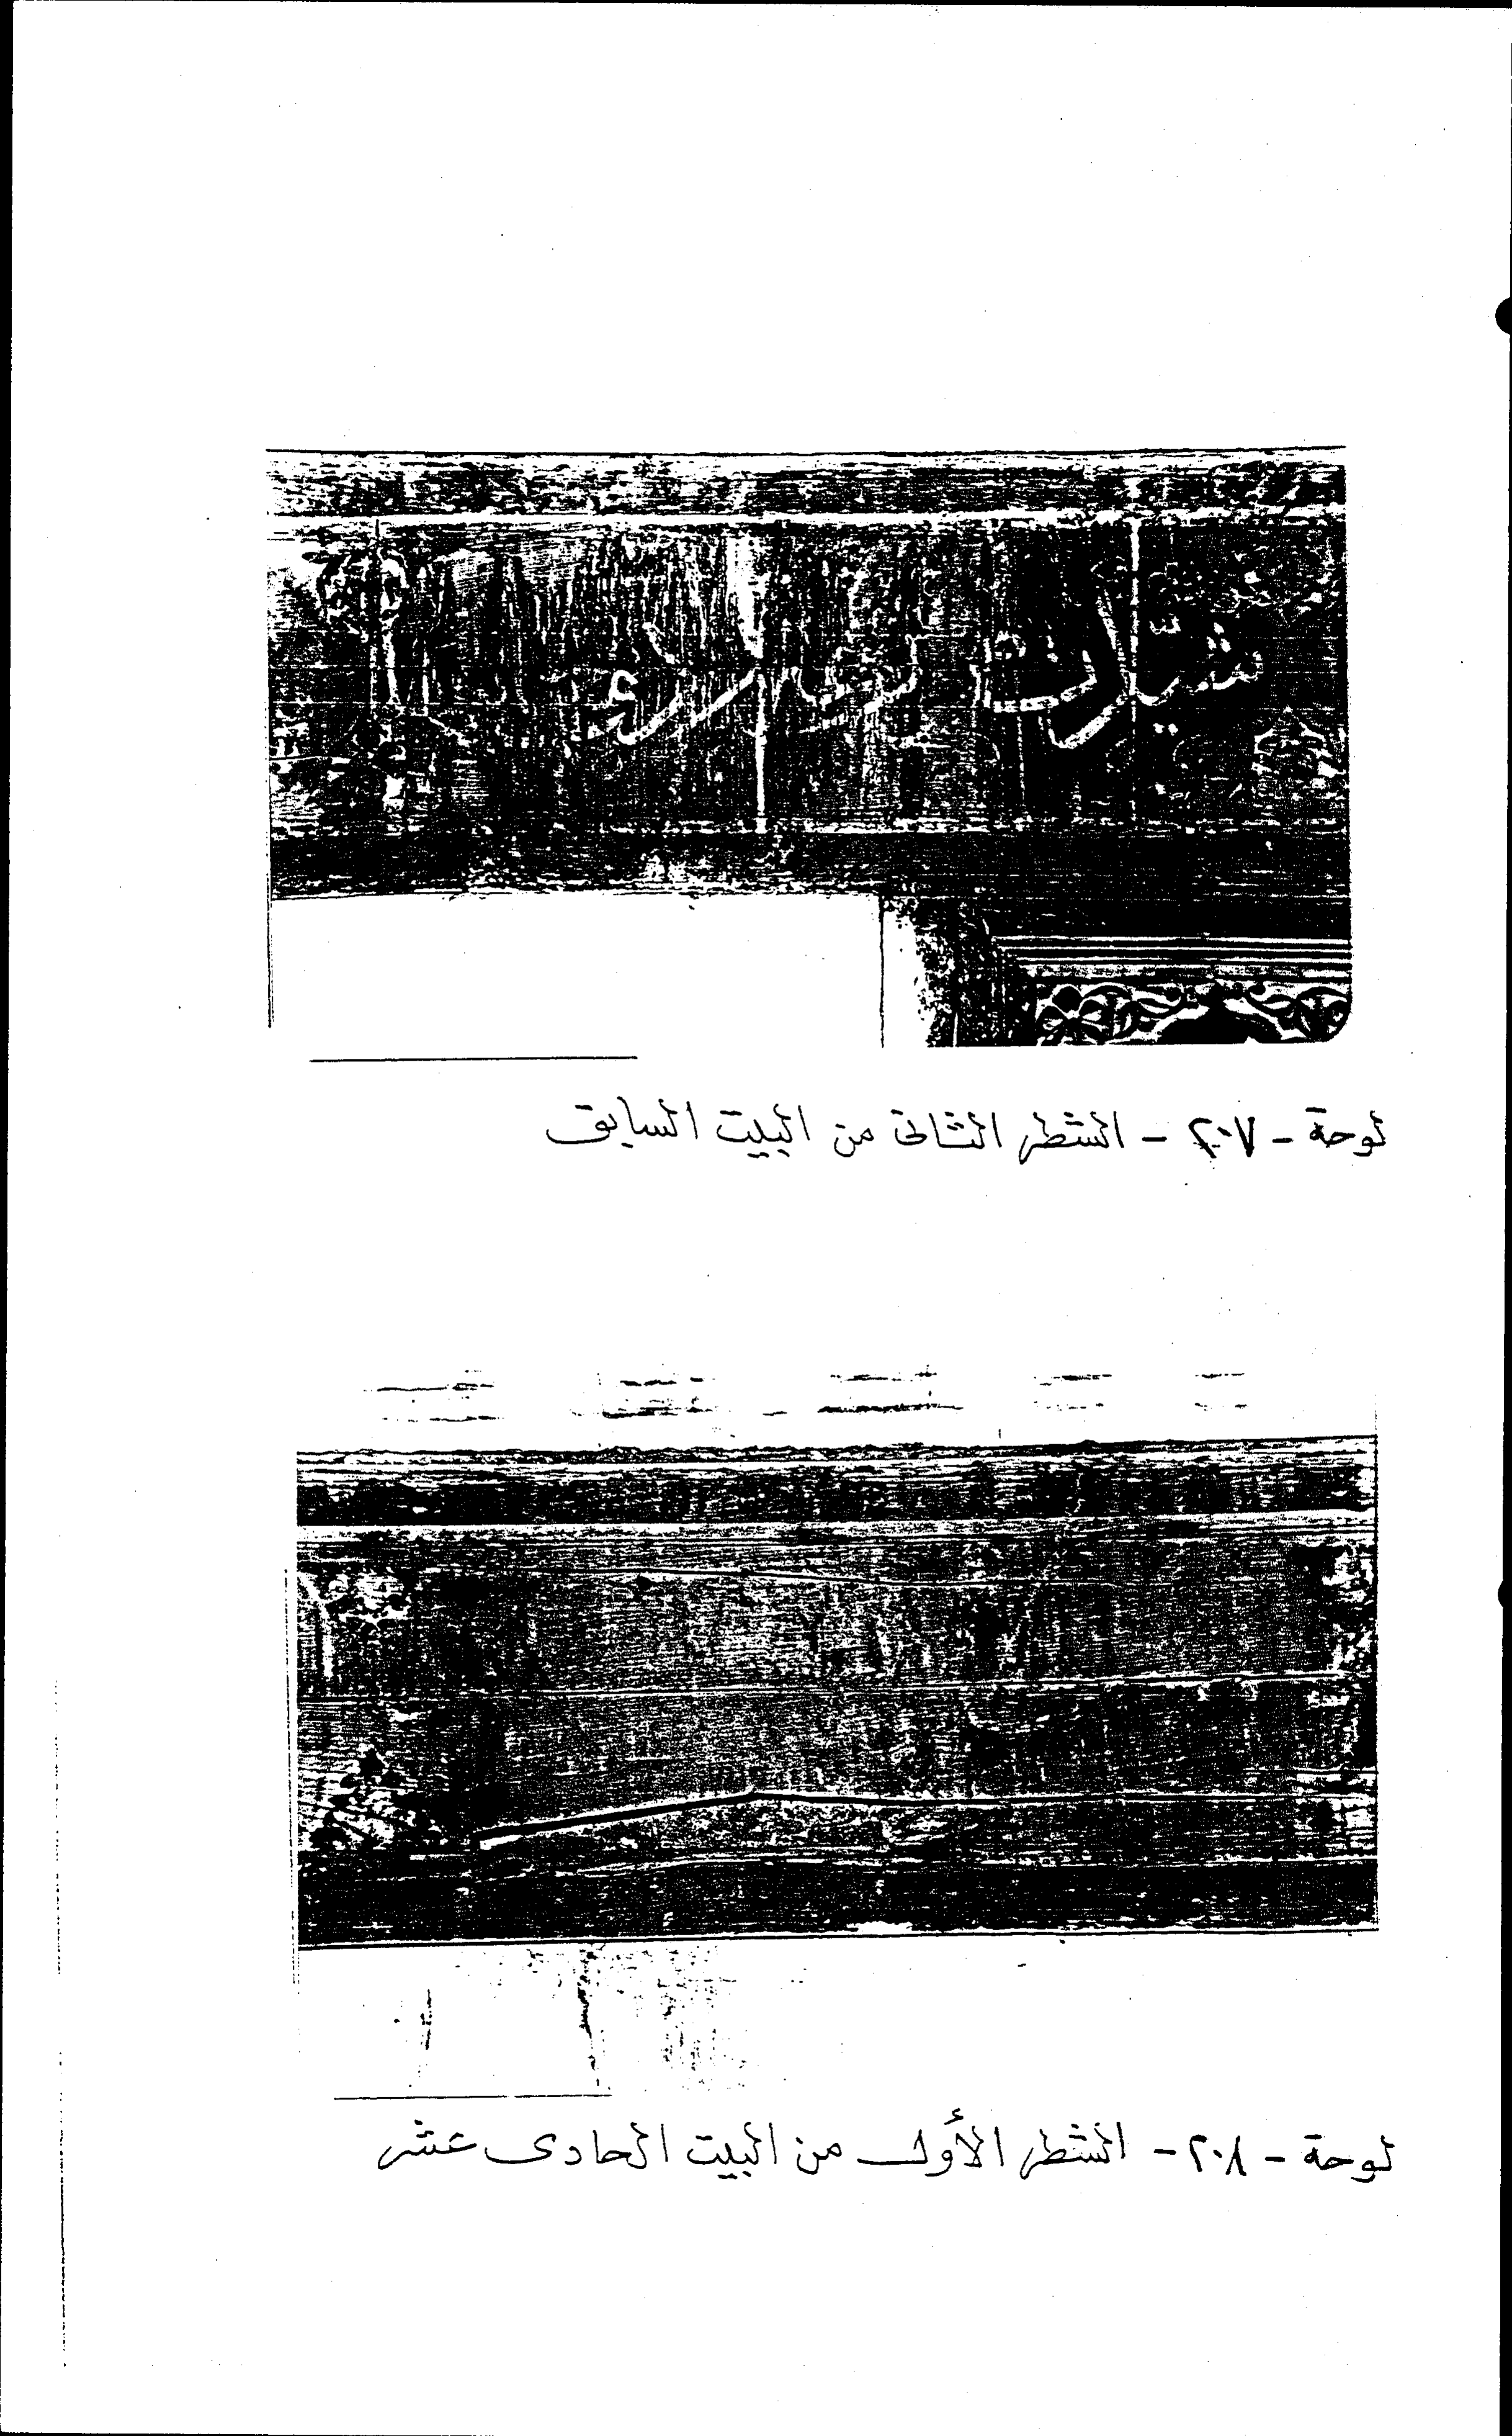 لوحة - ٢٠٧ - الشطر الثانى من البيت السابق
لوحة - ٢٠٨ - الشطر الأول من البيت الحادى عشر